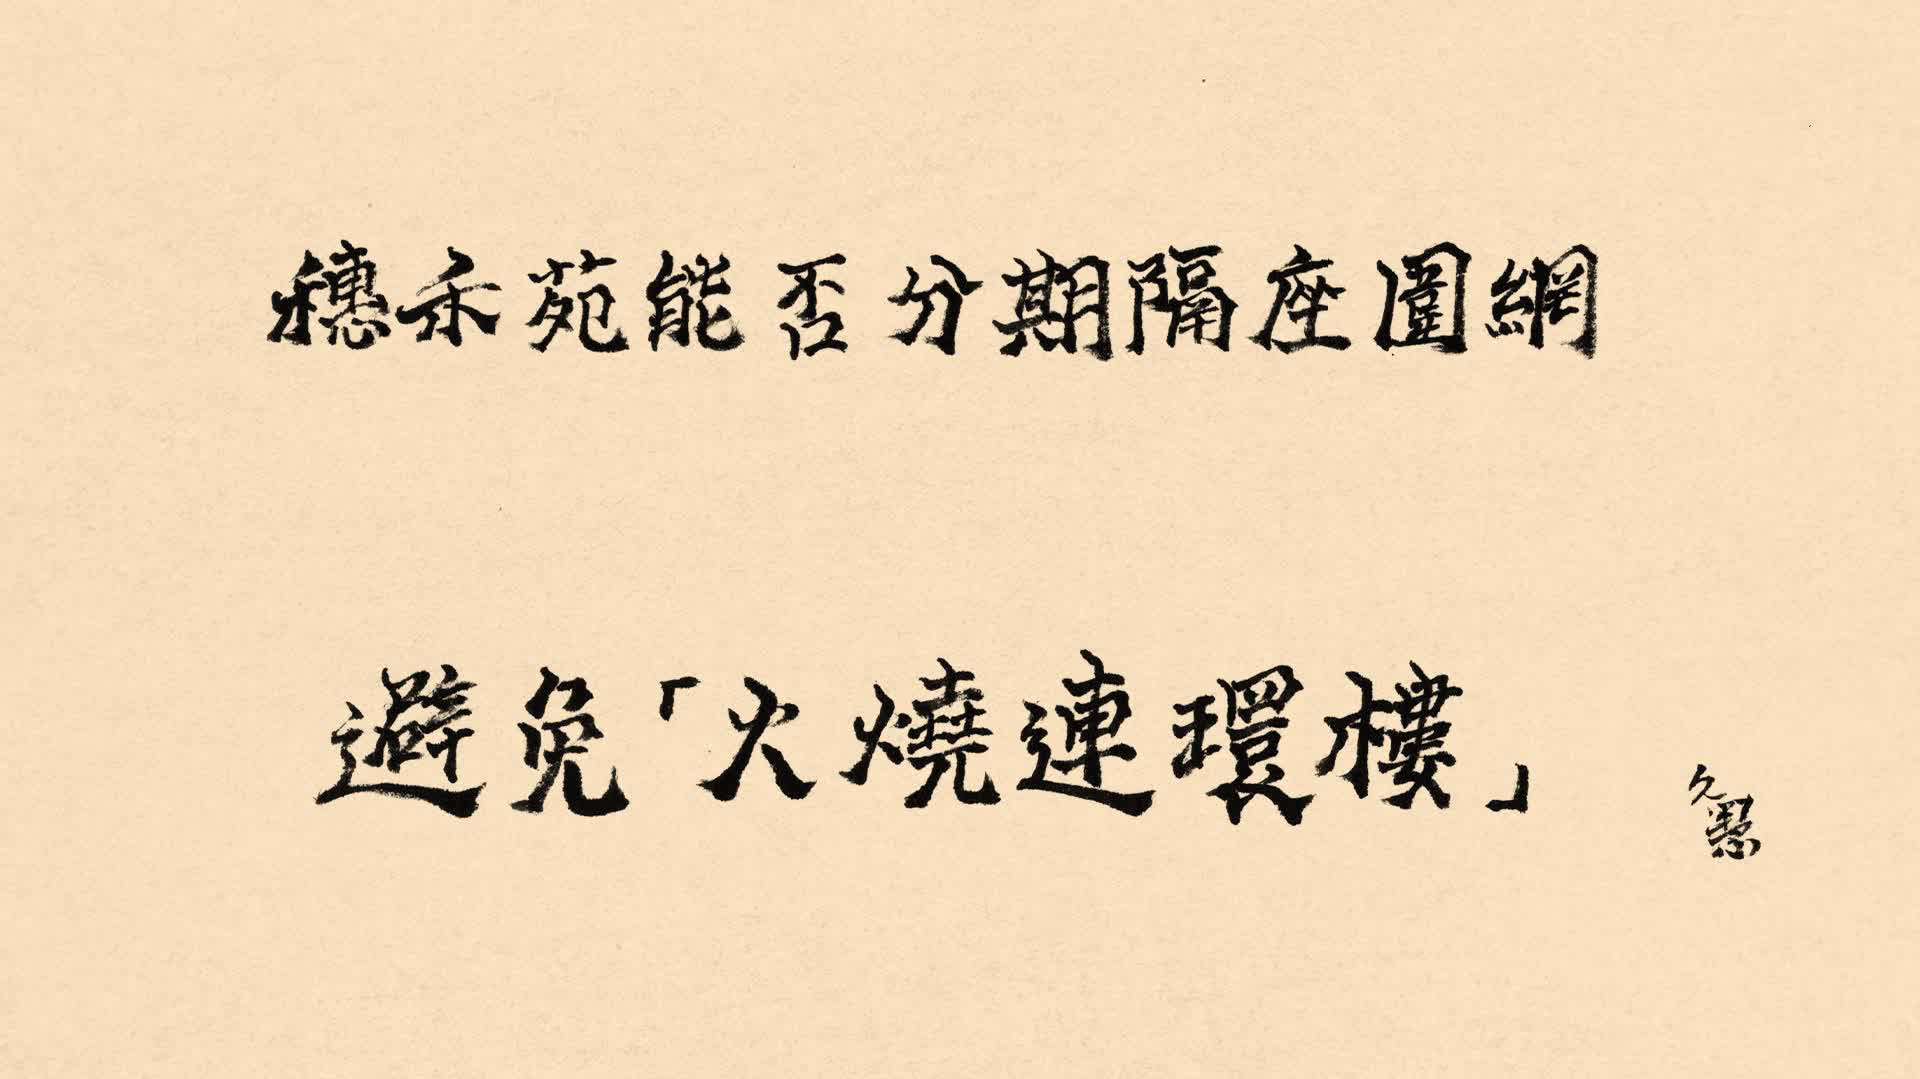 穗禾苑能否分期隔座圍網
避免「火燒連環樓」
久愚